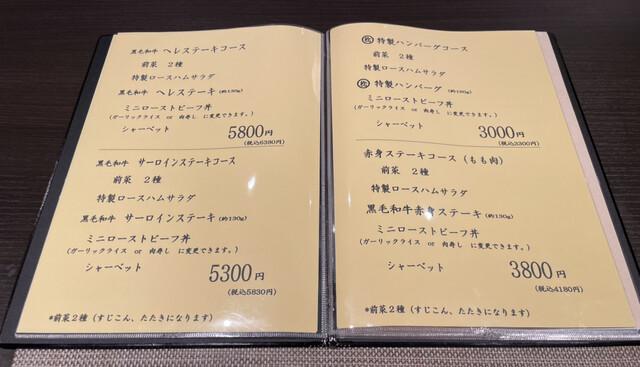 黒毛和牛 ヘレステーキコース
前菜 2種
特製ロースハムサラダ
黒毛和牛 ヘレステーキ (約130g)
ミニローストビーフ丼
(ガーリックライス or 肉寿し に変更できます。)
シャーベット
5800円
(税込6380円)
黒毛和牛 サーロインステーキコース
前菜 2種
特製ロースハムサラダ
黒毛和牛 サーロインステーキ (約130g)
ミニローストビーフ丼
(ガーリックライス or 肉寿し に変更できます。)
シャーベット
5300円
(税込5830円)
*前菜2種(すじこん、たたきになります)
特製ハンバーグコース
前菜 2種
特製ロースハムサラダ
特製ハンバーグ
ミニローストビーフ丼
(ガーリックライス or 肉寿し に変更できます。)
シャーベット
3000円
(税込3300円)
赤身ステーキコース(もも肉)
前菜 2種
特製ロースハムサラダ
黒毛和牛赤身ステーキ (約130g)
ミニローストビーフ丼
(ガーリックライス or 肉寿し に変更できます。)
シャーベット
3800円
(税込4180円)
*前菜2種(すじこん、たたきになります)